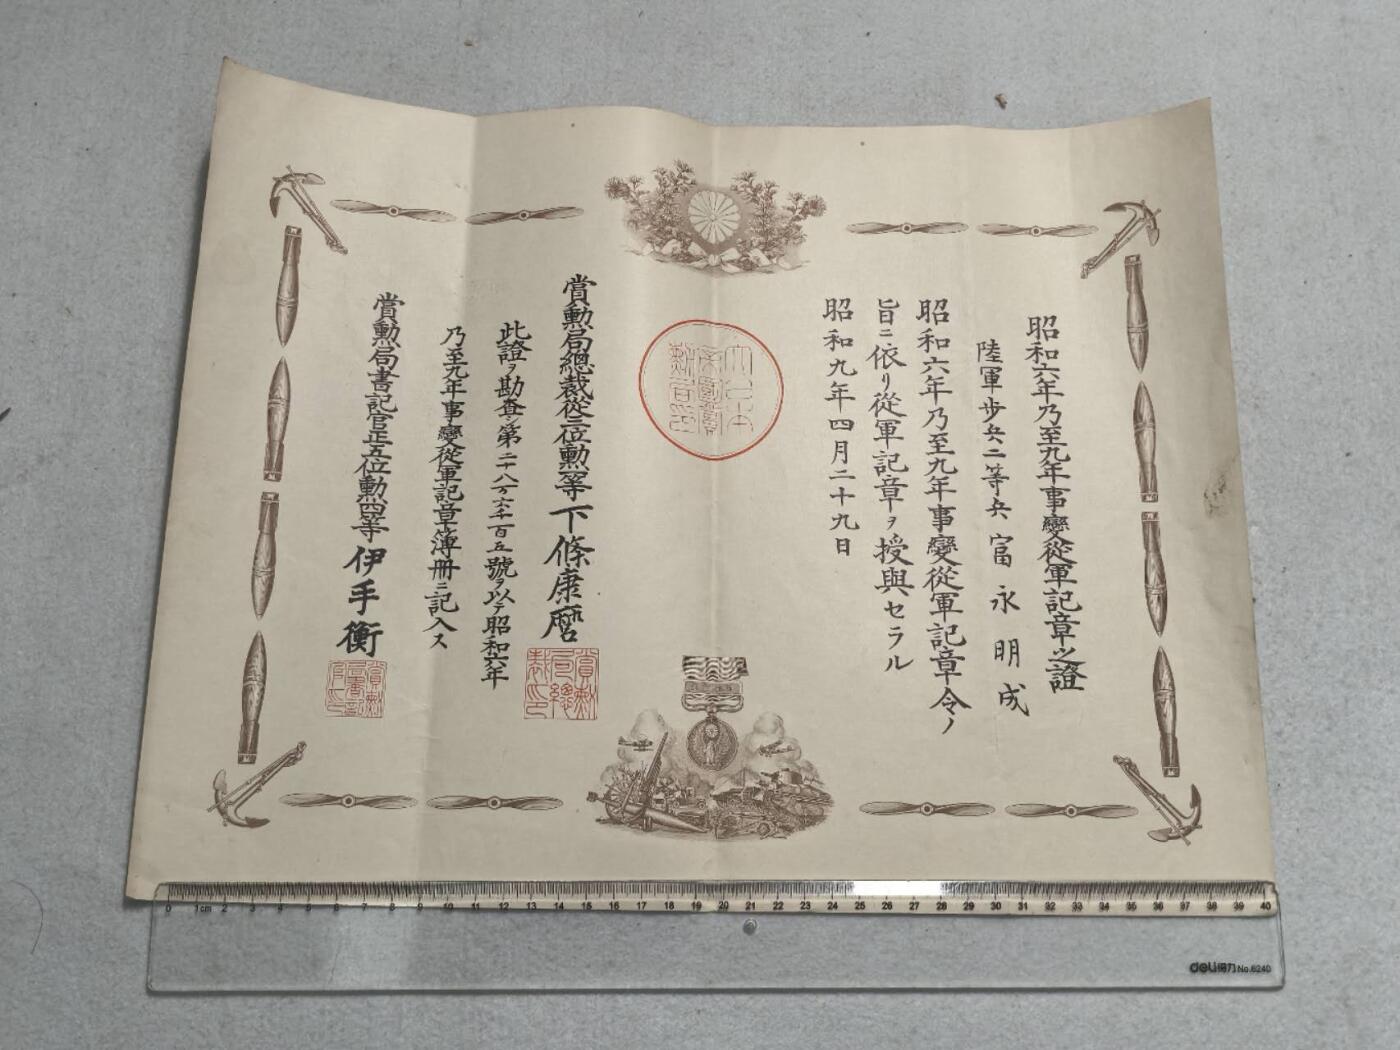 昭和六年乃至九年事變從軍記章之證
陸軍歩兵二等兵 富永明成
昭和六年乃至九年事變從軍記章令ノ
旨ニ依リ從軍記章ヲ授與セラル
昭和九年四月二十九日
大日本
帝國賞
勲局印
賞勲局總裁從三位勲一等下條康麿
賞勲
局總
裁印
此證ヲ勘査シ第二十八万六千百五號ヲ以テ昭和六年
乃至九年事變從軍記章簿册ニ記入ス
賞勲局書記官正五位勲四等伊手衡
賞勲
局書記
官印
0 1cm 2 3 4 5 6 7 8 9 10 11 12 13 14 15 16 17 18 19 20 21 22 23 24 25 26 27 28 29 30 31 32 33 34 35 36 37 38 39 40
deli得力 No.6240